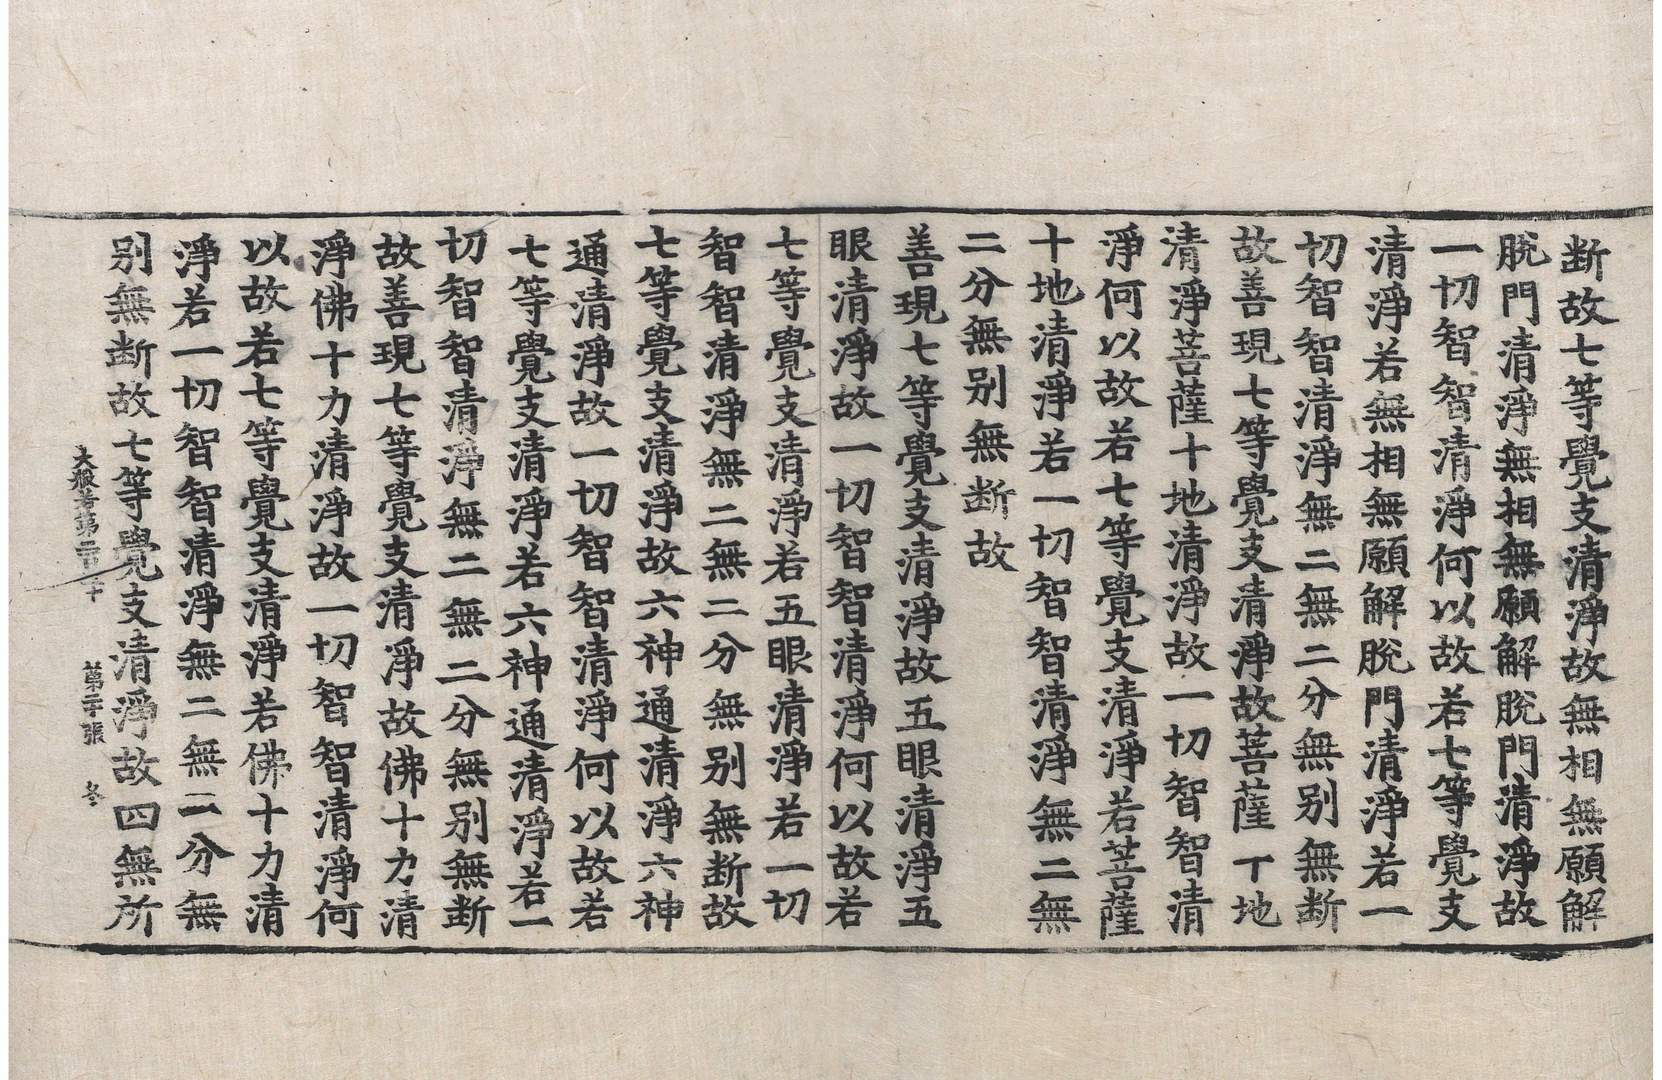 断故七等覺支清淨故無相無願解
脫門清淨無相無願解脫門清淨故
一切智智清淨何以故若七等覺支
清淨若無相無願解脫門清淨若一
切智智清淨無二無二分無別無断
故善現七等覺支清淨故菩薩十地
清淨菩薩十地清淨故一切智智清
淨何以故若七等覺支清淨若菩薩
十地清淨若一切智智清淨無二無
二分無別無断故
善現七等覺支清淨故五眼清淨五
眼清淨故一切智智清淨何以故若
七等覺支清淨若五眼清淨若一切
智智清淨無二無二分無別無断故
七等覺支清淨故六神通清淨六神
通清淨故一切智智清淨何以故若
七等覺支清淨若六神通清淨若一
切智智清淨無二無二分無別無断
故善現七等覺支清淨故佛十力清
淨佛十力清淨故一切智智清淨何
以故若七等覺支清淨若佛十力清
淨若一切智智清淨無二無二分無
別無断故七等覺支清淨故四無所
大般若第二百十 第二十張 冬